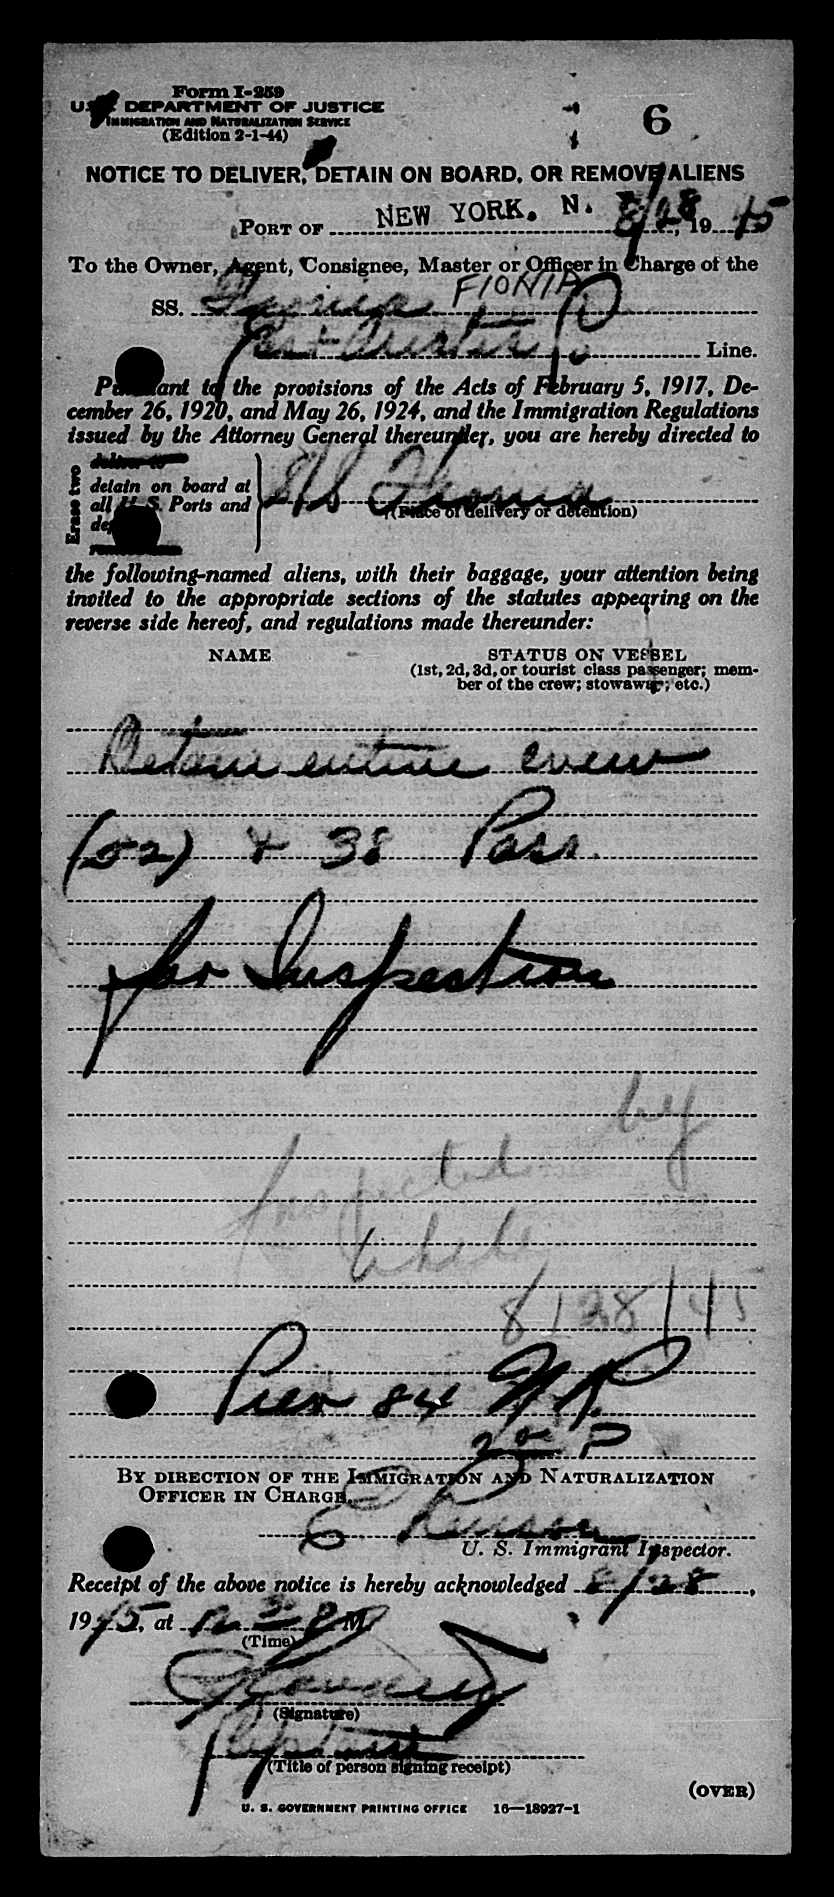 Form I-259
U. S. DEPARTMENT OF JUSTICE
IMMIGRATION AND NATURALIZATION SERVICE
(Edition 2-1-44)
6
NOTICE TO DELIVER, DETAIN ON BOARD, OR REMOVE ALIENS
PORT OF NEW YORK, N. 8/28, 1945
To the Owner, Agent, Consignee, Master or Officer in Charge of the
FIONIA
SS. Fionia
Line.
Pursuant to the provisions of the Acts of February 5, 1917, De-
cember 26, 1920, and May 26, 1924, and the Immigration Regulations
issued by the Attorney General thereunder, you are hereby directed to
Erase two
deliver to
detain on board at
all U. S. Ports and
S/S Fionia
(Place of delivery or detention)
the following-named aliens, with their baggage, your attention being
invited to the appropriate sections of the statutes appearing on the
reverse side hereof, and regulations made thereunder:
NAME
STATUS ON VESSEL
(1st, 2d, 3d, or tourist class passenger; mem-
ber of the crew; stowaway; etc.)
Detain entire crew
(52) & 38 Pass.
for Inspection
Inspected by
White
8/28/45
Pier 84 N.R.
2 00 P
BY DIRECTION OF THE IMMIGRATION AND NATURALIZATION
OFFICER IN CHARGE.
U. S. Immigrant Inspector.
Receipt of the above notice is hereby acknowledged 8/28,
1945, at P M.
(Time)
(Signature)
(Title of person signing receipt)
(OVER)
U. S. GOVERNMENT PRINTING OFFICE 16—18927-1